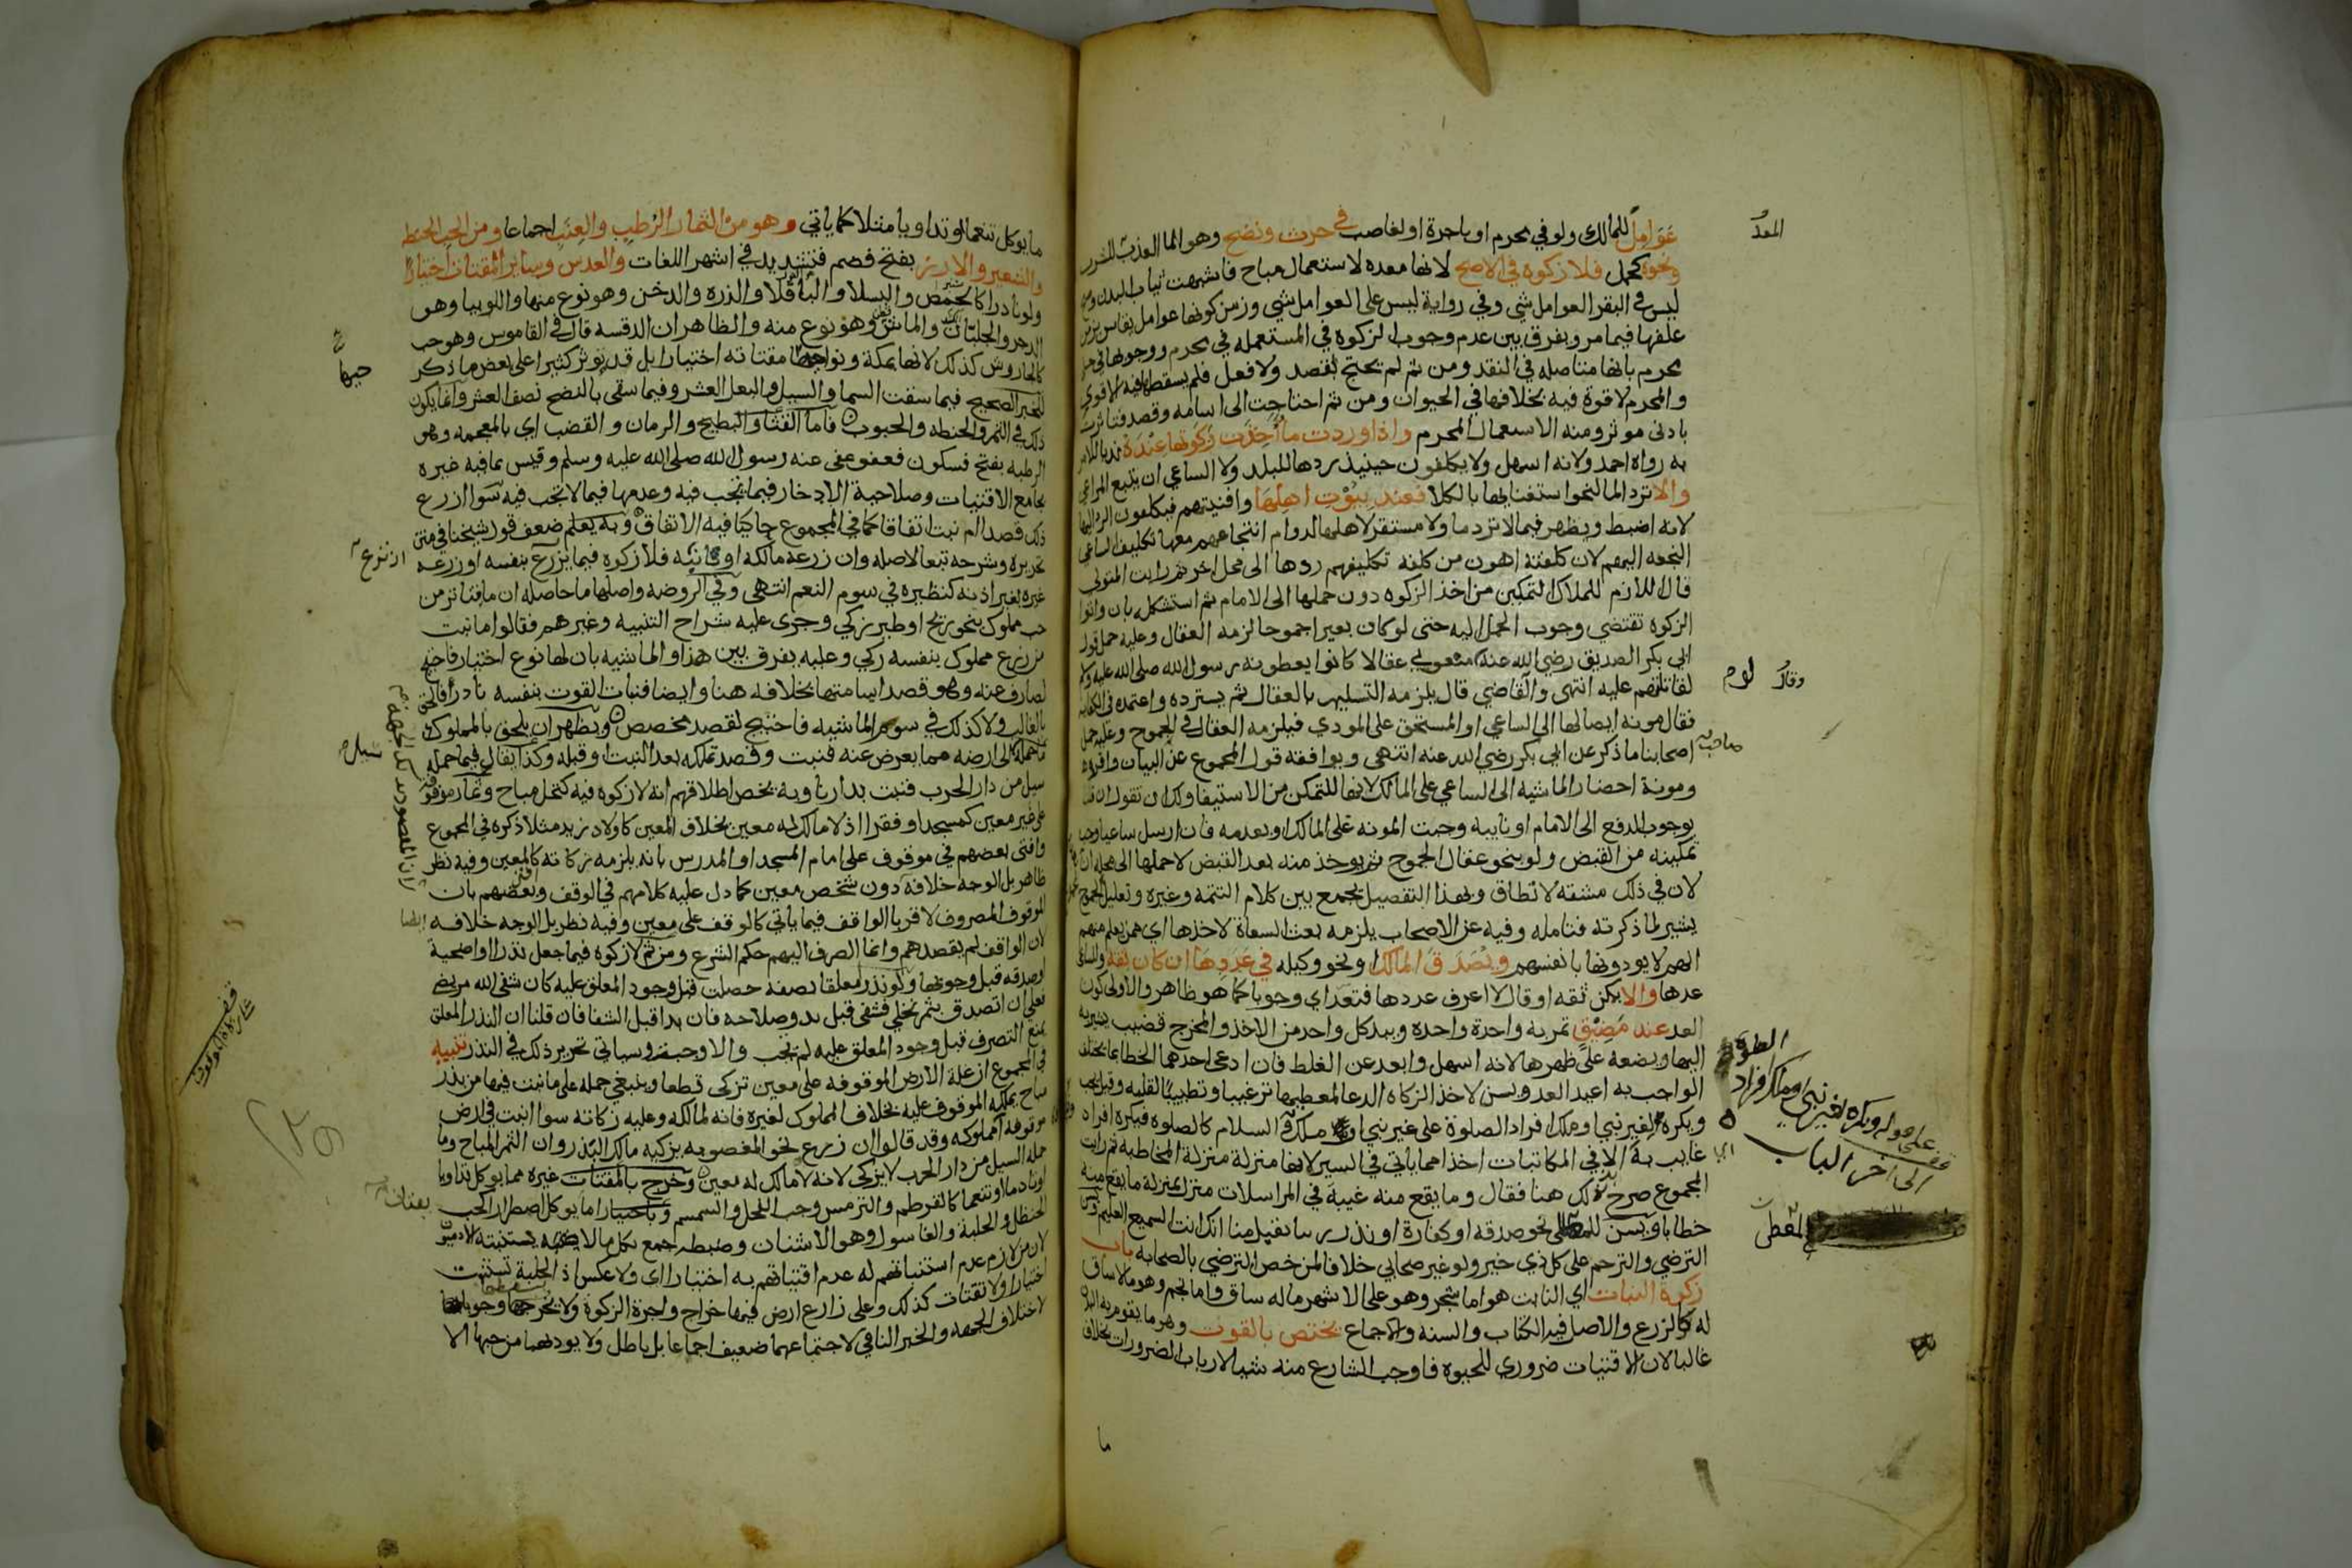 عَوَامِل للمالك ولو في محرم او باجرة او لغاصب في حرث ونضح وهو الما العذب للشرب
ونحوه كحمل فلا زكوة في الاصح لانها معده لاستعمال مباح فاشبهت ثياب البدن
ليس في البقر العوامل شي وفي رواية ليس على العوامل شي وزمن كونها عوامل يقاس بزمن
علفها فيما مر ويفرق بين عدم وجوب الزكوة في المستعمله في محرم ووجوبها في حلي
محرم بانها متاصله في النقد ومن ثم لم يحتج لقصد ولا فعل فلم يسقطها فيه الا قوي
والمحرم لا قوة فيه بخلافها في الحيوان ومن ثم احتاجت الى اسامه وقصد فتاثرت
بادنى موثر ومنه الاستعمال المحرم واذا وردت ما اُخِذَت زكوتها عنده ندبا للامر
به رواه احمد ولانه اسهل ولا يكلفون حينيذ ردها للبلد ولا الساعي ان يتبع المراعي
والا ترد الما لنحو استغنايها بالكلا فعند بيوت اهلها وافنيتهم فيكلفون الرد اليها
لانه اضبط ويظهر فيما لا ترد ما ولا مستقر لاهلها لدوام انتجاعهم معها تكليف الساعي
النجعه اليهم لان كلفته اهون من كلفة تكليفهم ردها الى محل اخر ثم رايت المتولي
قال اللازم للملاك التمكين من اخذ الزكوه دون حملها الى الامام ثم استشكله بان واتوا
الزكوة تقتضي وجوب الحمل اليه حتى لو كان بعيرا جموحا لزمه العقال وعليه حمل قول
ابي بكر الصديق رضي الله عنه منعوني عقالا كانوا يعطونه رسول الله صلى الله عليه وسلم
لقاتلتهم عليه انتهى والقاضي قال يلزمه التسليم بالعقال ثم يسترده واعتمده في الكفايه
فقال مونة ايصالها الى الساعي او المستحق على المودي فيلزمه العقال في الجموح وعليه حمل
اصحابنا ما ذكر عن ابي بكر رضي الله عنه انتهى ويوافقه قول المجموع عن البيان واقره
ومونة احضار الماشيه الى الساعي على المالك لانها للتمكن من الاستيفا ولك ان تقول ان قلنا
بوجوب الدفع الى الامام او نايبه وجبت المونه على المالك او بعدمه فان ارسل ساعيا وجب
تمكينه من القبض ولو بنحو عقال الجموح ثم يوخذ منه بعد القبض لا حملها الى محله
لان في ذلك مشقه لا تطاق وبهذا التفصيل يجمع بين كلام التتمة وغيره وتعليل المجموع
يشير لما ذكرته فتامله وفيه عن الاصحاب يلزمه بعث السعاة لاخذها اي ممن يعلم منهم
انهم لا يودونها بانفسهم ويُصَدَّقَ المالك ونحو وكيله في عَدَدِها ان كان ثقه والساعي
عدها والا يكن ثقه او قال لا اعرف عددها فتعد اي وجوبا كما هو ظاهر والاولى كون
العد عند مَضِيْقٍ تمر به واحدة واحدة وبيد كل واحد من الاخذ والمخرج قضيب يشير به
اليها ويضعه على ظهرها لانه اسهل وابعد عن الغلط فان ادعى احدهما الخطا بما يختلف
الواجب به اعيد العد ويسن لاخذ الزكاة الدعا لمعطيها ترغيبا وتطييبا لقلبه وقيل يجب
ويكره لغير نبي او ملك افراد الصلوة على غير نبي او ملك والسلام كالصلوه فيكره افراد
غايب به الا في المكاتبات اخذا مما ياتي في السير لانها منزلة منزلة المخاطبه ثم رايت
المجموع صرح بذلك هنا فقال وما يقع منه غيبة في المراسلات منزل منزلة ما يقع منه
خطابا ويسن للمعطي نحو صدقه او كفارة او نذر ربنا تقبل منا انك انت السميع العليم وكذا
الترضي والترحم على كل ذي خير ولو غير صحابي خلافا لمن خص الترضي بالصحابه باب
زكوة النبات اي النابت هو اما شجر وهو على الاشهر ما له ساق واما نجم وهو ما لا ساق
له كالزرع والاصل فيه الكتاب والسنه والاجماع يختص بالقوت وهو ما يقوم به البدن
غالبا لان الاقتيات ضروري للحيوة فاوجب الشارع منه شيا لارباب الضرورات بخلاف
ما
العد
وقال
لوم
صاحب
الطوه
على قوله ويكره لغير نبي او ملك افراد
قف
الى اخر الباب
اي
المعطي
ما يوكل تنعما او تداويا مثلا كما ياتي وهو من الثمار الرُطَب والعِنَب اجماعا ومن الحب الحنطه
والشعير والارز بفتح فضم فتشديد في اشهر اللغات والعدس وساير المقتات اختيارا
ولو نادرا كالحمص والبسلا والباقلا والذره والدخن وهو نوع منها واللوبيا وهو
الدجر والجلبّان والماش وهو نوع منه والظاهر ان الدقسه قال في القاموس وهو حب
كالجاروش كذلك لانها بمكة ونواحيها مقتاته اختيارا بل قد توثر كثيرا على بعض ما ذكر
للخبر الصحيح فيما سقت السما والسيل والبعل العشر وفيما سقى بالنضح نصف العشر وانما يكون
ذلك في التمر والحنطه والحبوب فاما القثا والبطيخ والرمان والقضب اي بالمعجمه وهو
الرطبه بفتح فسكون فعفو عفى عنه رسول الله صلى الله عليه وسلم وقيس بما فيه غيره
بجامع الاقتيات وصلاحية الادخار فيما تجب فيه وعدمها فيما لا تجب فيه سوا ازرع
ذلك قصدا ام نبت اتفاقا كما في المجموع حاكيا فيه الاتفاق وبه يعلم ضعف قول شيخنا في متن
تحريره وشرحه تبعا لاصله وان زرعه مالكه او نايبه فلا زكوه فيما يزرع بنفسه او زرعه
غيره بغير اذنه كنظيره في سوم النعم انتهى وفي الروضه واصلها ما حاصله ان ما تناثر من
حب مملوك بنحو ريح او طير زكي وجرى عليه شراح التنبيه وغيرهم فقالوا ما نبت
من زرع مملوك بنفسه زكي وعليه يفرق بين هذا والماشيه بان لها نوع اختيار فاحتيج
لصارف عنه وهو قصد اسامتها بخلافه هنا وايضا فنبات القوت بنفسه نادر فالحق
بالغالب ولا كذلك في سوم الماشيه فاحتيج لقصد مخصص ويظهر ان يلحق بالمملوك
ما حمله الى ارضه مما يعرض عنه فنبت وقصد تملكه بعد النبت او قبله وكذا يقال فيما حمله
سيل من دار الحرب فنبت بدارنا وبه يخص اطلاقهم انه لا زكوه فيه كنخل مباح وثمار موقوفه
على غير معين كمسجد او فقرا اذ لا مالك له معين بخلاف المعين كاولاد زيد مثلا ذكره في المجموع
وافتى بعضهم في موقوف على امام المسجد او المدرس بانه يلزمه زكاته كالمعين وفيه نظر
ظاهر بل الوجه خلافه دون شخص معين كما دل عليه كلامهم في الوقف وبعضهم بان
الموقوف المصروف لاقربا الواقف فيما ياتي كالوقف على معين وفيه نظر بل الوجه خلافه
لان الواقف لم يقصدهم وانما الصرف اليهم حكم الشرع ومن ثم لا زكوه فيما جعل نذرا او اضحية
او صدقه قبل وجوبها ولو نذر معلقا بصفه حصلت قبل وجود المعلق عليه كان شفى الله مريضي
فعلي ان اتصدق بثمر نخلي فشفى قبل بدو صلاحه فان بدا قبل الشفا فان قلنا ان النذر المعلق
يمنع التصرف قبل وجود المعلق عليه لم تجب والا وجبت وسياتي تحرير ذلك في النذر تنبيه
في المجموع ان غلة الارض الموقوفه على معين تزكى قطعا وينبغي حمله على ما نبت فيها من بذر
مباح يملكه الموقوف عليه بخلاف المملوك لغيره فانه لمالكه وعليه زكاته سوا انبت في ارض
موقوفه ام مملوكه وقد قالوا ان زرع نحو المغصوبه يزكيه مالك البذر وان الثمر المباح وما
حمله السيل من دار الحرب لا يزكى لانه لا مالك له معين وخرج بالمقتات غيره مما يوكل تداويا
او تادما او تنعما كالقرطم والترمس وحب الفجل والسمسم وباختيارا ما يوكل اضطرارا كحب
الحنظل والحلبة والغاسول وهو الاشنان وضبطه جمع بكل ما لا يستنبته الادميون
لان من لازم عدم استنباتهم له عدم اقتياتهم به اختيارا اي ولا عكس اذ الحلبة تستنبت
اختيارا ولا تقتات كذلك وعلى زارع ارض فيها خراج واجرة الزكوة ولا يسقطها وجوبهما
لاختلاف الجهه والخبر النافي لاجتماعهما ضعيف اجماعا بل باطل ولا يوديهما من حبها الا
حبها
ازرع
سيل
ايضا
قف
يقتات